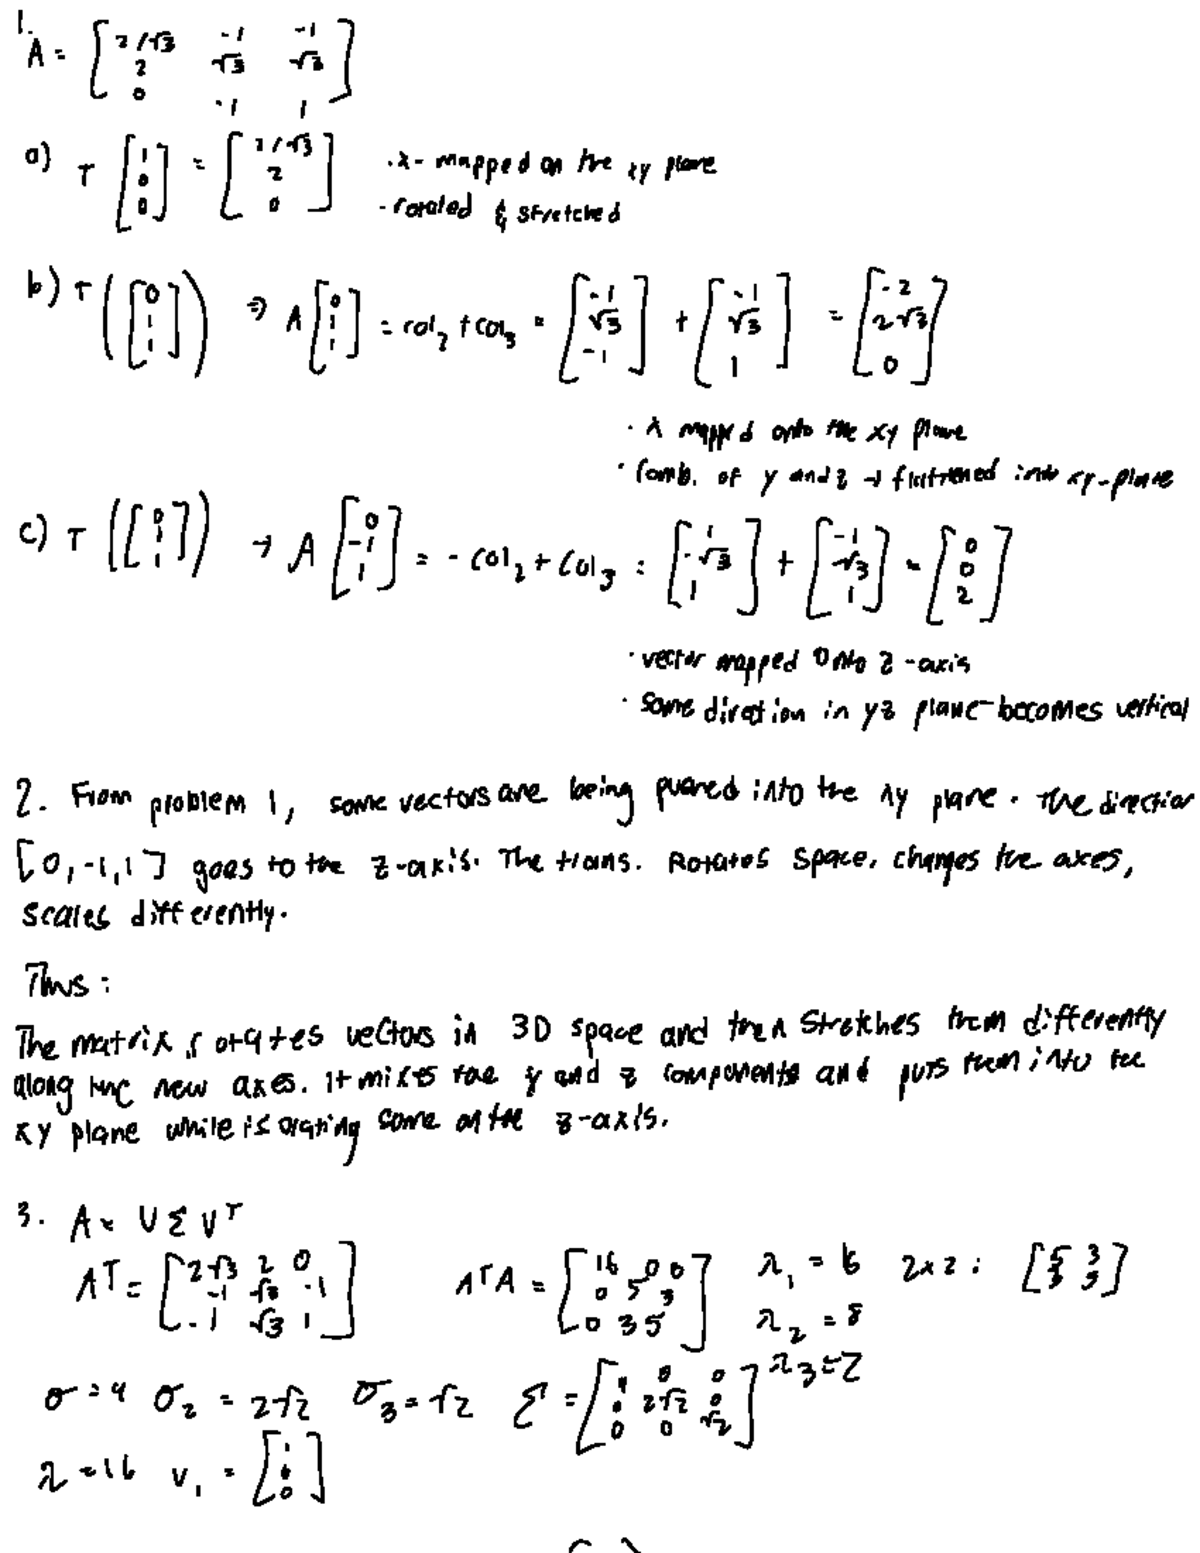 1.
A = [ 2/√3 -1 -1 ; 2 √3 √3 ; 0 -1 1 ]
a) T [ 1 ; 0 ; 0 ] = [ 2/√3 ; 2 ; 0 ] . x - mapped on the xy plane
- rotated & stretched
b) T ( [ 0 ; 1 ; 1 ] ) => A [ 0 ; 1 ; 1 ] = col₂ + col₃ = [ -1 ; √3 ; -1 ] + [ -1 ; √3 ; 1 ] = [ -2 ; 2√3 ; 0 ]
· mapped onto the xy plane
· Comb. of y and z → flattened into xy-plane
c) T ( [ 0 ; 1 ; 1 ] ) → A [ 0 ; -1 ; 1 ] = - col₂ + col₃ = [ 1 ; -√3 ; 1 ] + [ -1 ; √3 ; 1 ] = [ 0 ; 0 ; 2 ]
· vector mapped onto z-axis
· some direction in yz plane becomes vertical
2. From problem 1, some vectors are being pushed into the xy plane. The direction
[0,-1,1] goes to the z-axis. The trans. Rotates space, changes the axes,
scales differently.
Thus:
The matrix rotates vectors in 3D space and then stretches them differently
along the new axes. it mixes the y and z components and puts them into the
xy plane while isolating some on the z-axis.
3. A = U Σ Vᵀ
Aᵀ = [ 2√3 2 0 ; -1 √3 -1 ; -1 √3 1 ] AᵀA = [ 16 0 0 ; 0 5 3 ; 0 3 5 ] λ₁ = 16 2x2: [ 5 3 ; 3 5 ]
λ₂ = 8
λ₃ = 2
σ = 4 σ₂ = 2√2 σ₃ = √2 Σ = [ 4 0 0 ; 0 2√2 0 ; 0 0 √2 ]
λ = 16 v₁ = [ 1 ; 0 ; 0 ]